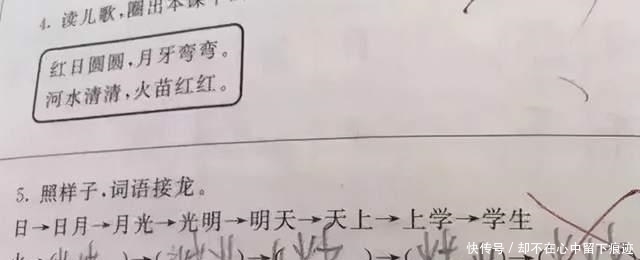 4. 读儿歌,圈出本课
红日圆圆,月牙弯弯。
河水清清,火苗红红。
5. 照样子,词语接龙。
日→日月→月光→光明→明天→天上→上学→学生
快传号/却不在心中留下痕迹